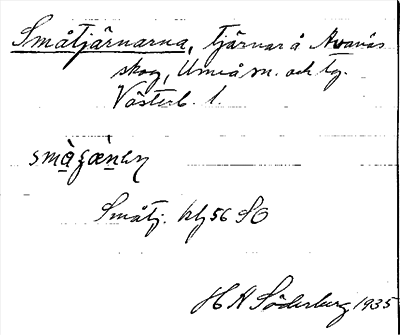 Småtjärnarna, tjärnar å Avanäs
skog, Umeå sn. och tg.
Västerb. l.
Småtj. blj 56 SO
H A Söderberg 1935